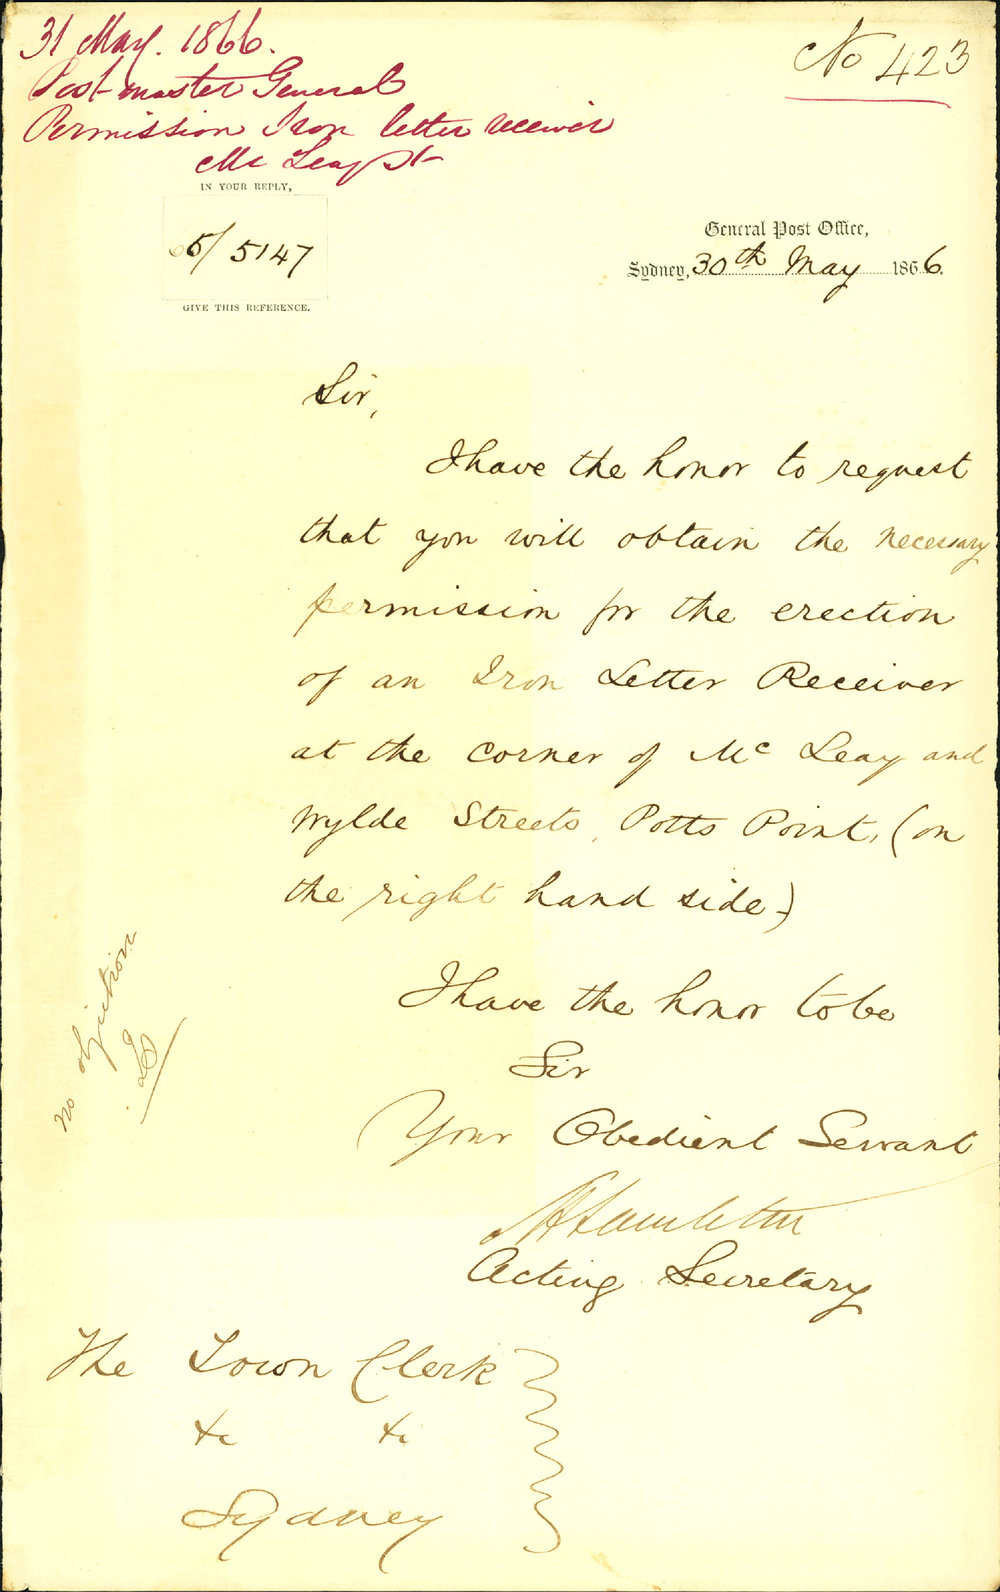 31 May. 1866.
Post-master General
Permission Iron letter receiver
Mc Leay St
No 423
IN YOUR REPLY,
65/5147
GIVE THIS REFERENCE.
General Post Office,
Sydney, 30th May 1866.
Sir,
I have the honor to request
that you will obtain the necessary
permission for the erection
of an Iron Letter Receiver
at the corner of Mc Leay and
Wylde Streets, Potts Point, (on
the right hand side)
no objection
I have the honor to be
Sir
Your Obedient Servant
Acting Secretary
The Town Clerk
&c &c
Sydney